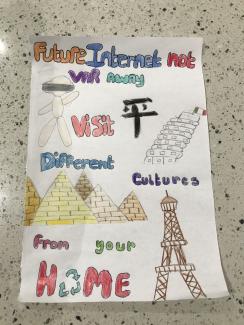 Future Internet not
VAR Away
Visit 平
Different
Cultures
From your
HOME